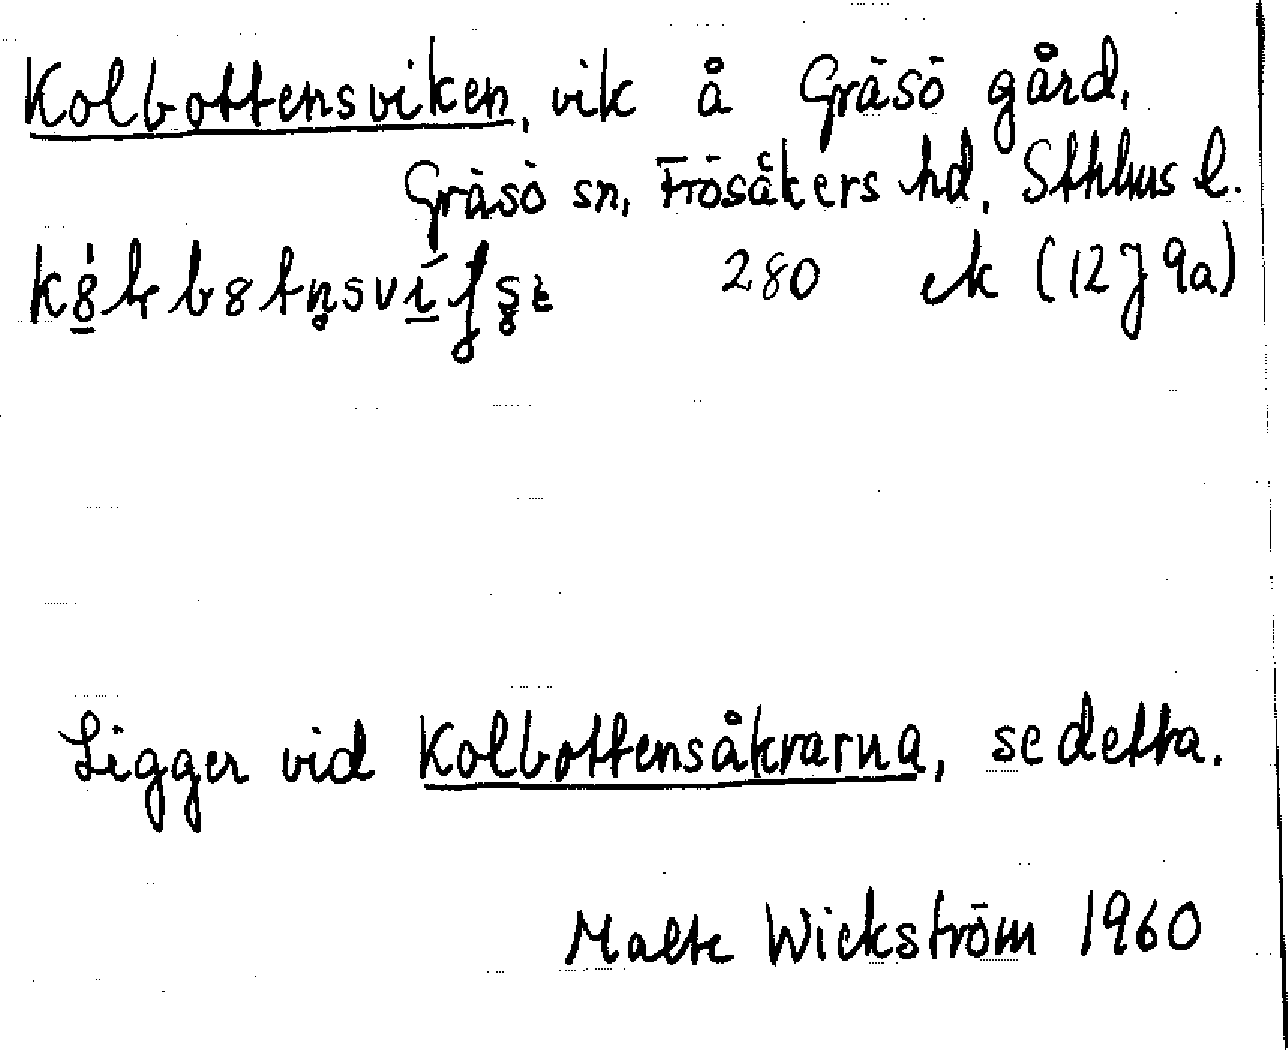 Kolbottensviken, vik å Gräsö gård,
Gräsö sn, Frösåkers hd, Sthlms l.
280 ek (12J 9a)
Ligger vid Kolbottensåkrarna, se detta.
Malte Wickström 1960